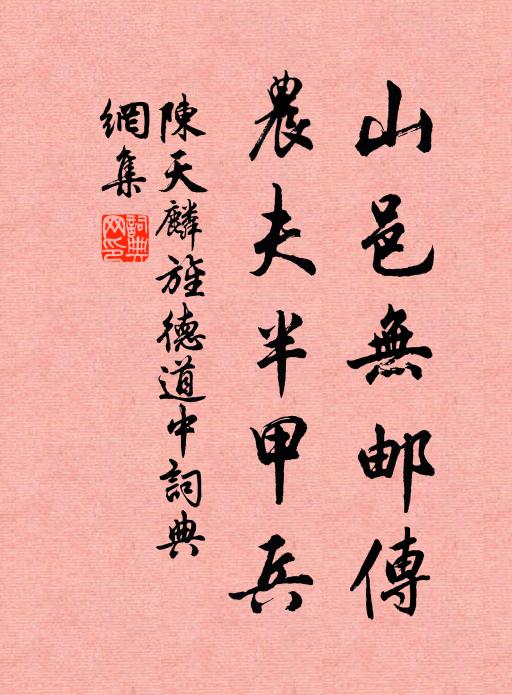 山邑無郵傳
農夫半甲兵
陳天麟旌德道中詞典
網集
詞典網印